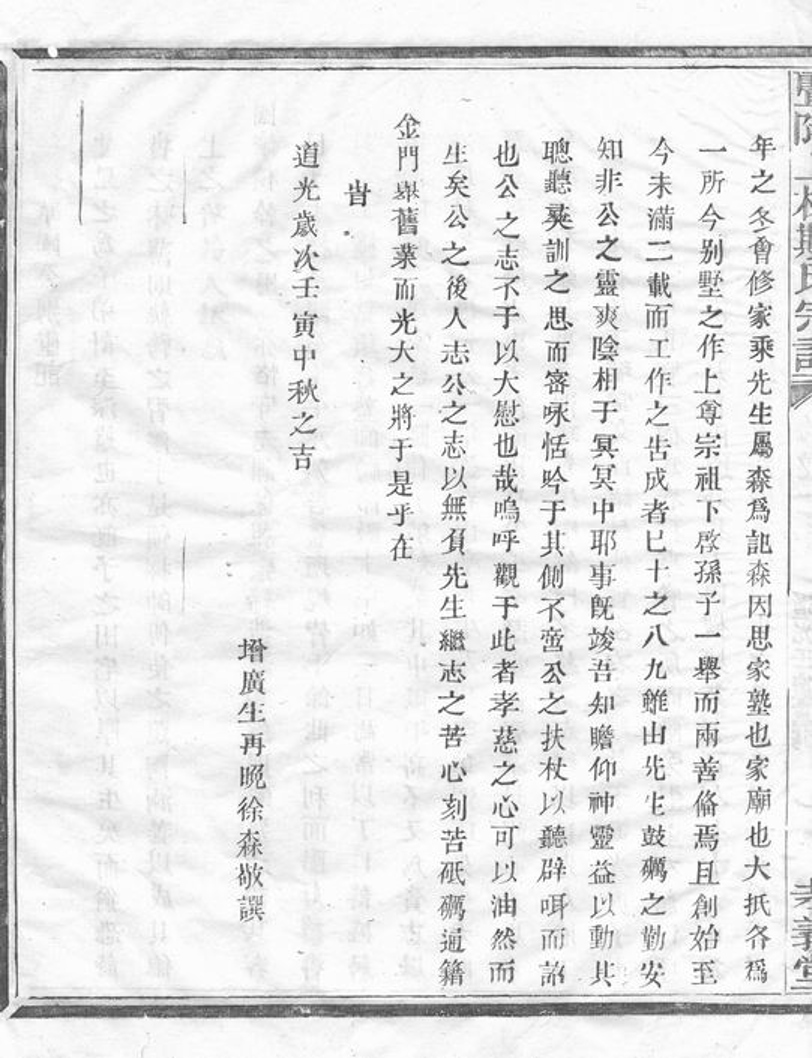 年之冬會修家乘先生屬森爲記森因思家塾也家廟也大抵各爲
一所今别墅之作上尊宗祖下啓孫子一舉而兩善俻焉且創始至
今未滿二載而工作之告成者已十之八九雖由先生鼓礪之勤安
知非公之靈爽隂相于冥冥中耶事旣竣吾知瞻仰神靈益以動其
聰聽彛訓之思而寤咏恬吟于其側不啻公之扶杖以聽辟咡而詔
也公之志不于以大慰也哉嗚呼觀于此者孝慈之心可以油然而
生矣公之後人志公之志以無負先生繼志之苦心刻苦砥礪通籍
金門舉舊業而光大之將于是乎在
旹
道光歲次壬寅中秋之吉
增廣生再晩徐森敬譔
氏宗譜
孝義堂